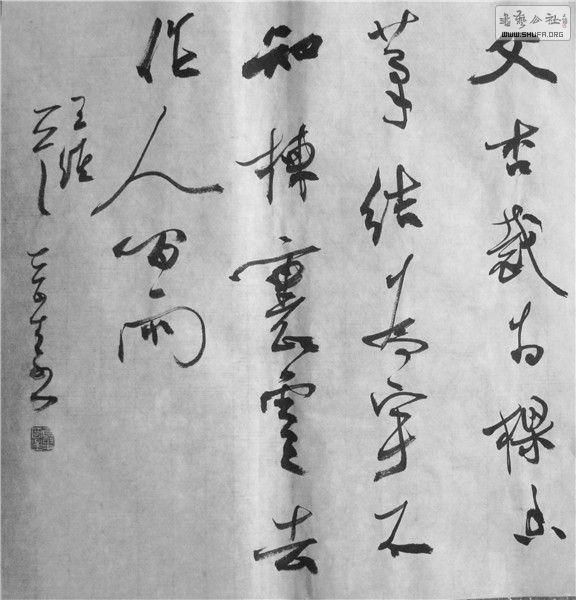 書藝公社
WWW.SHUFA.ORG
文杏裁为樑香
茅结为宇不
知棟裏雲去
作人间雨
王維